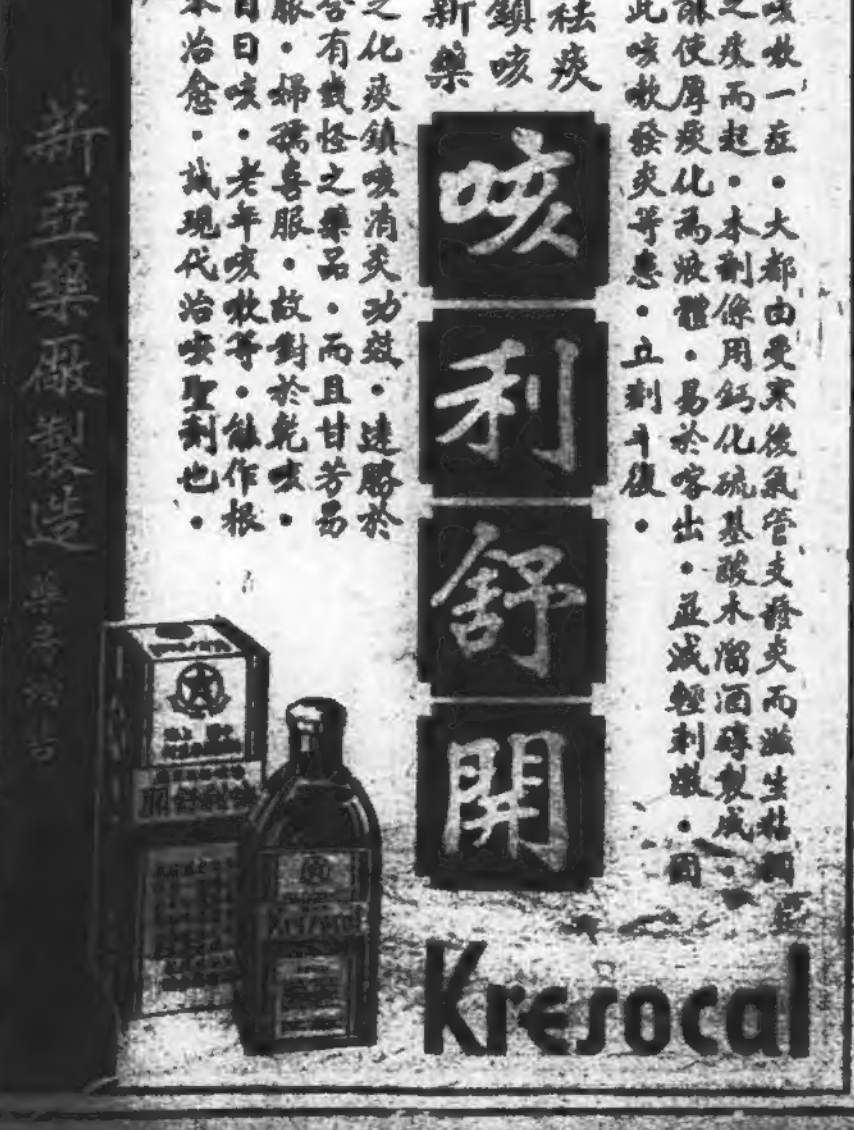 咳嗽一症・大都由受寒後氣管支發炎而滋生粘稠
之痰而起・本劑係用鈣化硫基酸木溜酒製成・
使厚痰化為液體・易於咯出・並減輕刺激・因
此咳嗽發炎等患・立刻平復・
祛痰
鎮咳
新藥
咳利舒開
Kresocal
之化痰鎮咳消炎功效・遠勝於
含有怪之藥品・而且甘芳易
服・婦孺喜服・故對於乾咳・
百日咳・老年咳嗽等・能作根
本治愈・誠現代治咳聖劑也・
新亞藥廠製造
咳利舒開
Kresocal